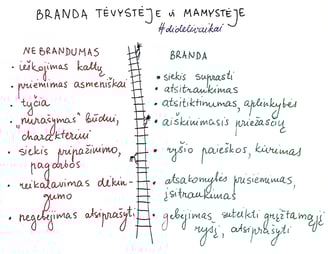 BRANDA TĖVYSTĖJE ir MAMYSTĖJE
#didelivaikai
NEBRANDUMAS
• ieškojimas kaltų
• priėmimas asmeniškai
• tyčia
• "nurašymas" būdui,
"charakteriui"
• siekis pripažinimo,
pagarbos
• reikalavimas dėkin-
gumo
• negebėjimas atsiprašyti
BRANDA
• siekis suprasti
• atsitraukimas
• atsitiktinumas, aplinkybės
• aiškinimasis priežasčių
• ryšio paieškos, kūrimas
• atsakomybės prisiėmimas,
įsitraukimas
• gebėjimas suteikti grįžtamąjį
ryšį, atsiprašyti